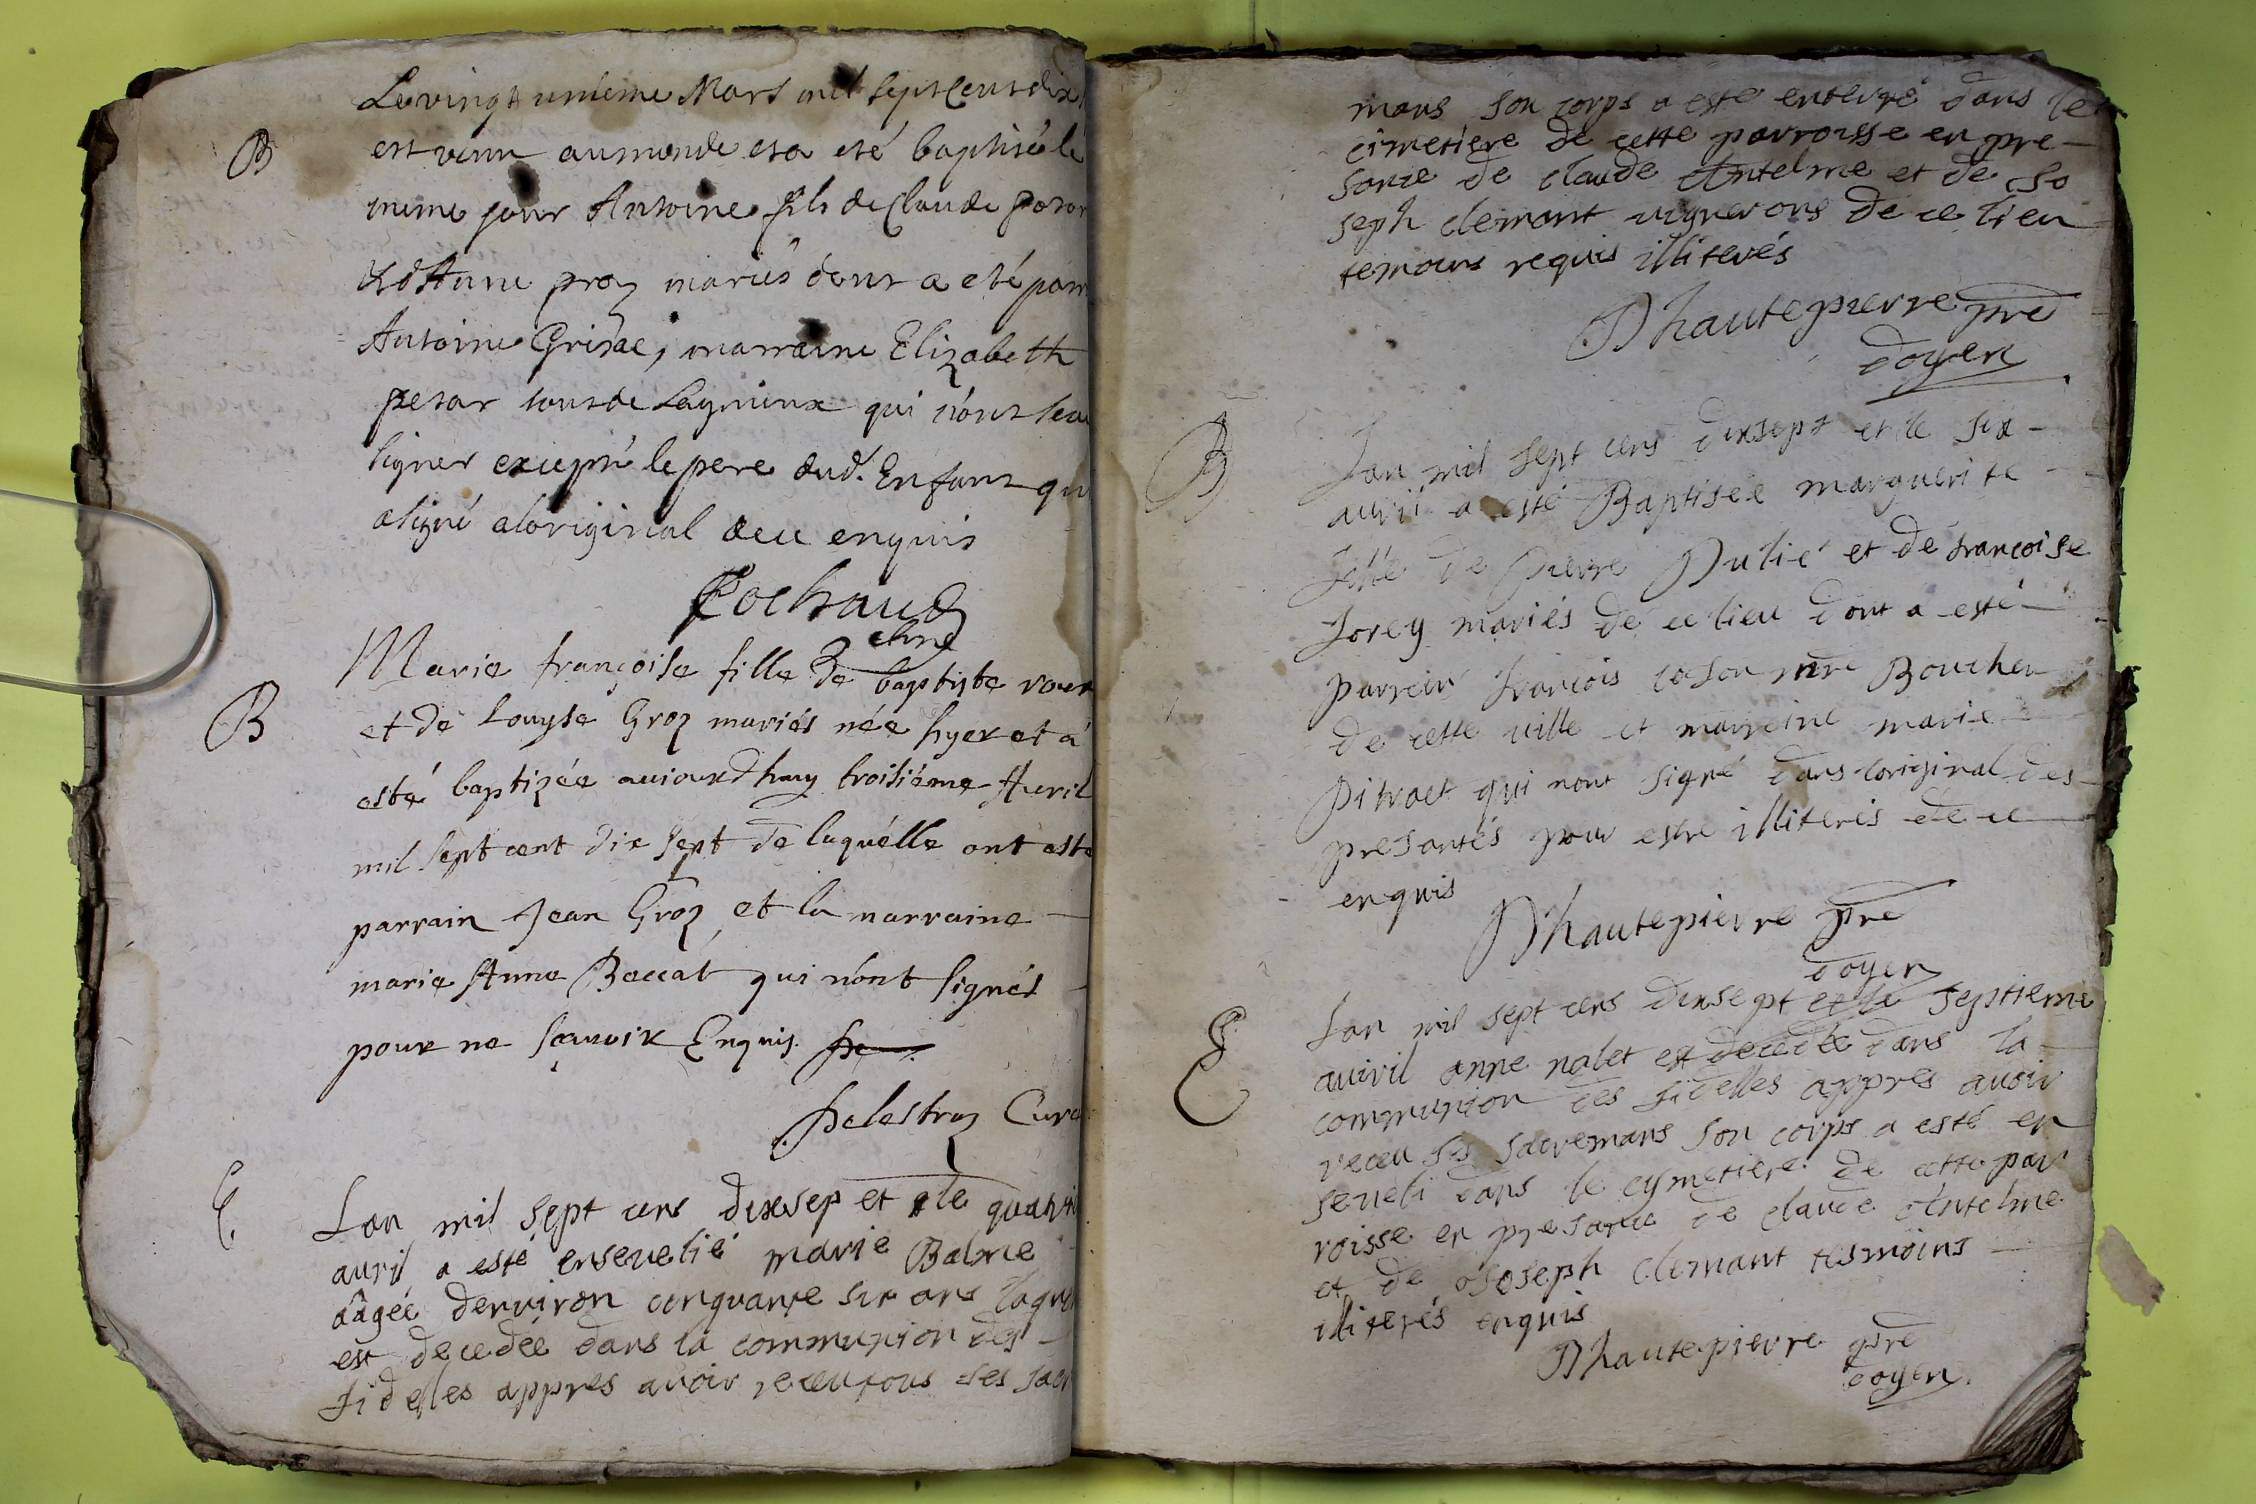 Le vingt unieme Mars mil sept cent dix
B
est venu au monde et a eté baptisé le
meme jour Antoine fils de Claude
mariés dont a eté parr
Antoine marraine Elizabeth
petar tous de qui n'ont sceu
signer excepté le pere dud. Enfant qu
a signé a l'original de ce enquis
Cochaud
Marie françoise fille de baptiste
B
et de Louyse Groz mariés née hyer et a
esté baptizée aujourd'huy troisiéme Avril
mil sept cent dix sept de laquélle ont esté
parrain Jean Groz et la marraine
marie Anne Beccat qui n'ont signés
pour ne sçavoir Enquis.
Delestraz Curé
E
Lan mil sept cens dixsep et le quatri
avril a esté ensevelie marie Balme
aâgée denviron cinquante six ans laque
est decedée dans la communion des
fidelles appres avoir receu tous ses sacr
mans son corps a esté enterré dans le
cimetiere de cette parroisse en pre-
sance de claude Antelme et de Jo
seph clemant vignerons de ce lieu
temoins requis illiterés
Dhautepierre pre
doyen
B
Lan mil sept cens dixsept et le six
avril a esté Baptisée marguerite
fille de pierre Dutié et de francoise
Jorcy mariés de ce lieu dont a esté
parrein francois coson mre Boucher
de cette ville et marreine marie
Pitraet qui nont signé dans loriginal des
presantes pour estre illiterés de ce
enquis
Dhautepierre pre
doyen
E
Lan mil sept cens dixsept et le septieme
avivil anne nalet est decedée dans la
communion des fidelles appres avoir
receu ses sacremans son corps a esté en
seveli dans le cymetiere de cette par
roisse en presance de claude Antelme
et de Joseph clemant tesmoins
illiterés enquis
Dhautepierre pre
doyen